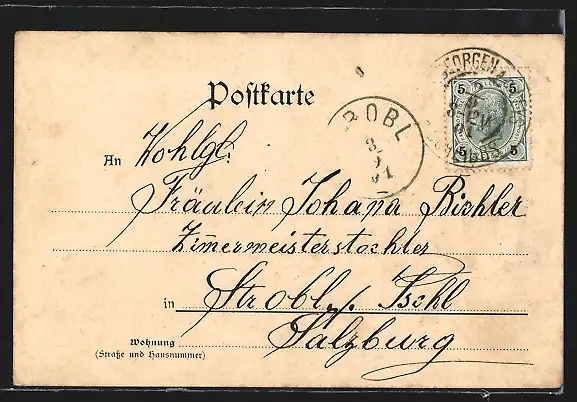 Postkarte
An Wohlgl.
Fräulein Johana Bichler
Zimermeisterstochter
in Strobl / Ischl
Salzburg
Wohnung
(Straße und Hausnummer)
5 5
5 5
ROBL
3
9
01